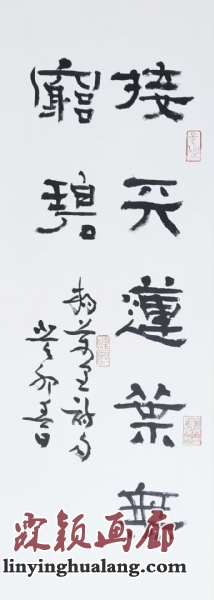 接天蓮葉無
窮碧
楊萬里詩句
癸卯夏日
霖颖画廊
linyinghualang.com